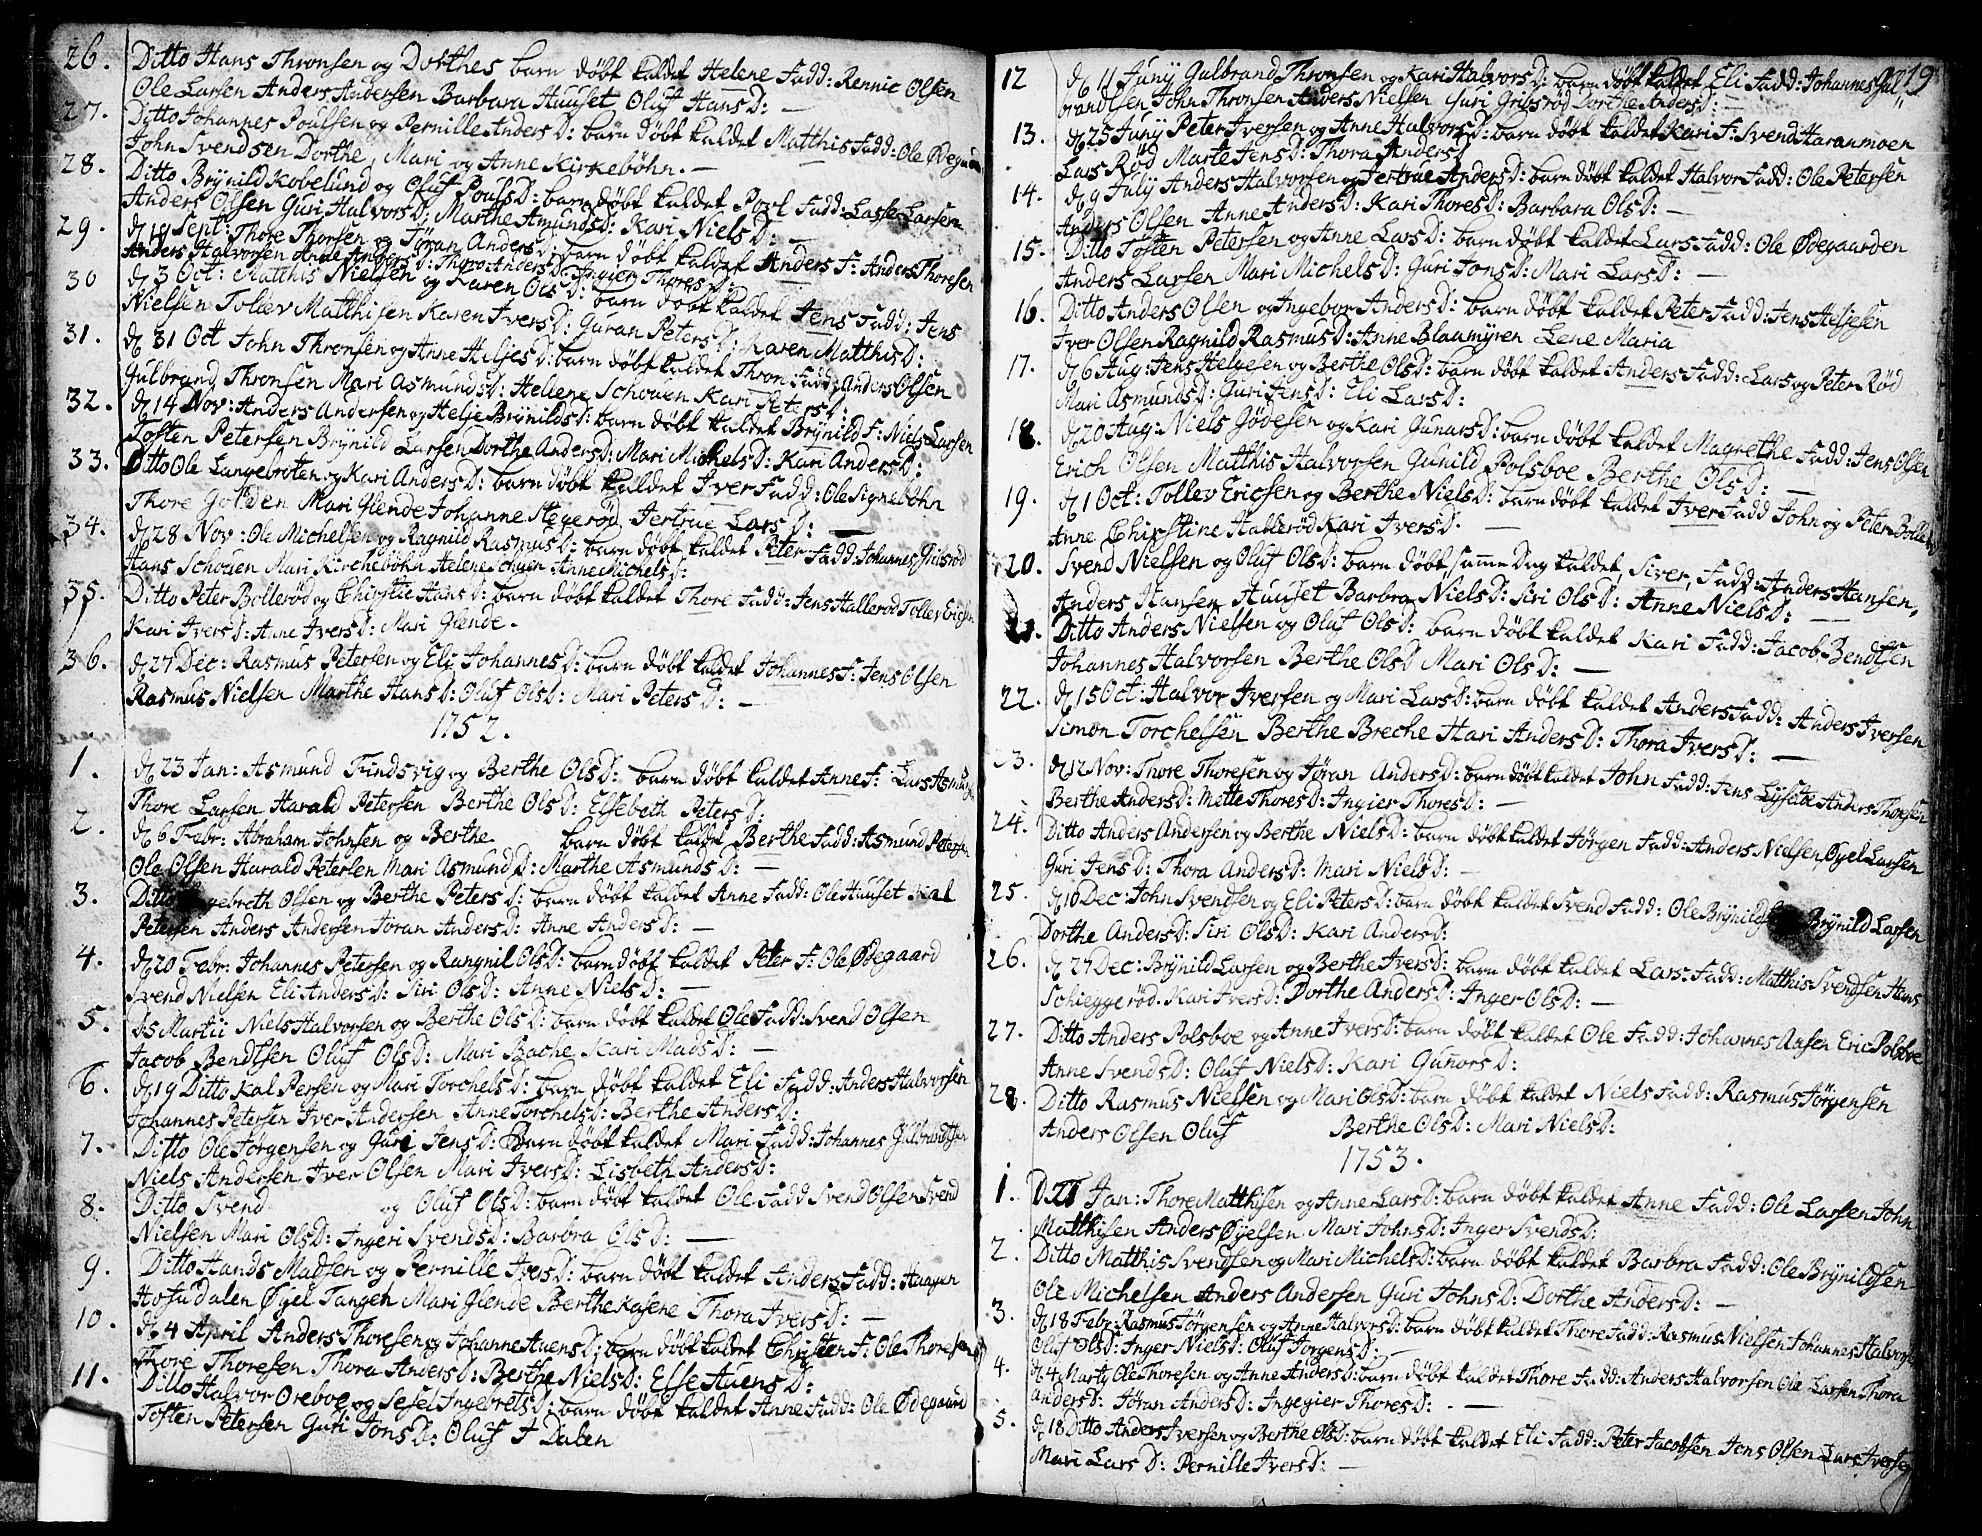 26. Ditto Hans Thronsen og Dorthes barn døbt kaldet Helene Fadd: Rennie Olsen
Ole Larsen Anders Andersen Barbara Huuset Oluf HansD: —
27. Ditto Johannes Poulsen og Pernille AndersD: barn døbt kaldet Matthis Fadd: Ole Ødegaard
John Svendsen Dorthe, Mari og Anne Kirkebøhn. —
28. Ditto Brÿnild Kobelund og Oluf PoulsD: barn døbt kaldet Povl Fadd: Lasse Larsen
Anders Olsen Guri HalvorsD: Marthe AmundsD: Kari NielsD: —
29. d 19 Sept: Thore Thorsen og Jøran AndersD: barn døbt kaldet Anders F: Anders Thoresen
Anders Halvorsen Anne AndersD: Thora AndersD: Ingier ThoresD:
30 d 3 Oct: Matthis Nielsen og Karen OlsD: barn døbt kaldet Jens Fadd: Jens
Nielsen Tollev Matthisen Karen IversD: Guran PetersD: Karen MatthisD:
31. d 31 Oct John Thronsen og Anne HeljesD: barn døbt kaldet Thron Fadd: Anders Olsen
Gulbrand Thronsen Mari AsmundsD: Hellene Schouen Kari PetersD:
32. d 14 Nov: Anders Andersen og Helje BrÿnildsD: barn døbt kaldet Brÿnild F: Niels Larsen
Tosten Petersen Brÿnild Larsen Dorthe AndersD: Mari MichelsD: Kari AndersD:
33. Ditto Ole Langebroten og Kari AndersD: barn døbt kaldet Iver Fadd: Ole Signebøhn
Thore Golden Mari Glende Johanne Stegerød Jertrue LarsD: —
34. d 28 Nov: Ole Michelsen og Ragnild RasmusD: barn døbt kaldet Peter Fadd: Johannes Gribsrød
Hans Schouen Mari Kirchebøhn Helene Schuen Anne MichelsD:
35. Ditto Peter Bollerød og Chirstie HansD: barn døbt kaldet Thore Fadd: Jens Hallerød Tollev Ericsen
Kari IversD: Anne IversD: Mari Glende.
36. d 27 Dec: Rasmus Petersen og Eli JohannesD: barn døbt kaldet Johannes F: Jens Olsen
Rasmus Nielsen Marthe HansD: Oluf OlsD: Mari PetersD: —
1752.
1. d 23 Jan: Asmund Findsvig og Berthe OlsD: barn døbt kaldet Anne F: Lars Asmunds
Thore Larsen Harald Petersen Berthe OlsD: Elsebeth PetersD:
2. d 6 Febr: Abraham Johnsen og Berthe barn døbt kaldet Berthe Fadd: Asmund Petersen
Ole Olsen Harald Petersen Mari AsmundsD: Marthe AsmundsD: —
3. Ditto Ingebreth Olsen og Berthe PetersD: barn døbt kaldet Anne Fadd: Ole Huuset Kal
Petersen Anders Andersen Jøran AndersD: Anne AndersD: —
4. d 20 Febr: Johannes Petersen og Rangnil OlsD: barn døbt kaldet Peter F: Ole Ødegaard
Svend Nielsen Eli AndersD: Siri OlsD: Anne NielsD: —
5. D 5 Martii Niels Halvorsen og Berthe OlsD: barn døbt kaldet Ole Fadd: Svend Olsen
Jacob Bendtsen Oluf OlsD: Mari Bache Kari MadsD: —
6. d 19 Ditto Kal Persen og Mari TorchelsD: barn døbt kaldet Eli Fadd: Anders Halvorsen
Johannes Petersen Iver Andersen Anne TorchelsD: Berthe AndersD:
7. Ditto Ole Jørgensen og Guri JensD: Barn døbt kaldet Mari Fadd: Johannes Gulbrandtsen
Niels Andersen Iver Olsen Mari IversD: Lisbeth AndersD:
8. Ditto Svend og Oluf OlsD: barn døbt kaldet Ole Fadd Svend Olsen Svend
Nielsen Mari OlsD: Ingeri SvendsD: Barbra OlsD: —
9. Ditto Hands Madsen og Pernille IversD: barn døbt kaldet Anders Fadd: Haagen
Hofudalen Øyel Tangen Mari Glende Berthe Kasene Thora IversD: —
10. d 4 April Anders Thoresen og Johanne AuensD: barn døbt kaldet Christen F: Ole Thoresen
Thore Thoresen Thora AndersD: Berthe NielsD: Else AuensD:
11. Ditto Halvor Oreboe og Sesel IngebretsD: barn døbt kaldet Anne Fadd: Ole Ødegaard
Tosten Petersen Guri JonsD: Oluf I Dalen
19
12 d 11 Junÿ Gulbrand Thronsen og Kari HalvorsD: barn døbt kaldet Eli Fadd: Johannes Gul
brandtsen John Thronsen Anders Nielsen Guri Gribsrød Dorthe AndersD: —
13. d 25 Junÿ Peter Iversen og Anne HalvorsD: barn døbt kaldet Kari F: Svend Haranmoen
Lars Rød Marte JensD: Thora AndersD
14. d 9 Julÿ Anders Halvorsen og Jertrue AndersD: barn døbt kaldet Halvor Fadd: Ole Petersen
Anders Olsen Anne AndersD: Kari ThoresD: Barbara OlsD: —
15. Ditto Tosten Petersen og Anne LarsD: barn døbt kaldet Lars Fadd: Ole Ødegaarden
Anders Larsen Mari MichelsD: Guri JonsD: Mari LarsD: —
16. Ditto Anders Olsen og Ingebor AndersD: barn døbt kaldet Peter Fadd: Jens Heljesen
Iver Olsen Ragnild RasmusD: Anne Blaamÿren Lene Maria
17. d 6 Aug: Jens Helgesen og Berthe OlsD: barn døbt kaldet Anders Fadd: Lars og Peter Rød
Mari AsmundsD: Guri JensD: Eli LarsD:
18. d 20 Aug: Niels Gødesen og Kari GunarsD: barn døbt kaldet Magrethe Fadd: Jens Olsen
Erich Olsen Matthis Halvorsen Gunild Polsboe Berthe OlsD: —
19. d 1 Oct: Tollev Ericsen og Berthe NielsD: barn døbt kaldet Iver Fadd John og Peter Bollerød
Anne Chirstine Hallerød Kari IversD. —
20. Svend Nielsen og Oluf OlsD: barn døbt samme Dag kaldet, Siver, Fadd: Anders Hansen,
Anders Hansen Huuset Barbra NielsD: Siri OlsD: Anne NielsD: —
21. Ditto Anders Nielsen og Oluf OlsD: barn døbt kaldet Kari Fadd: Jacob Bendtsen
Johannes Halvorsen Berthe OlsD Mari OlsD: —
22. d 15 Oct: Halvor Iversen og Mari LarsD: barn døbt kaldet Anders Fadd: Anders Iversen
Simon Torchelsen Berthe Breche Hari AndersD: Thora IversD: —
23. d 12 Nov: Thore Thoresen og Jøran AndersD: barn døbt kaldet John Fadd: Jens Lÿseboe Anders Thoresen
Berthe AndersD: Mette ThoresD: Ingier ThoresD: —
24. Ditto Anders Andersen og Berthe NielsD: barn døbt kaldet Jørgen Fadd: Anders Nielsen Øyel Larsen
Guri JensD: Thora AndersD: Mari NielsD: —
25. d 10 Dec: John Svendsen og Eli PetersD: barn døbt kaldet Svend Fadd: Ole Brÿnildsen Brÿnild Larsen
Dorthe AndersD: Siri OlsD: Kari AndersD:
26. d 27 Dec: Brÿnild Larsen og Berthe IversD: barn døbt kaldet Lars: Fadd: Matthis Svendsen Hans
Schieggerød. Kari IversD: Dorthe AndersD: Inger OlsD: —
27. Ditto Anders Polsboe og Anne IversD: barn døbt kaldet Ole Fadd: Johannes Aasen Eric Polsboe
Anne SvendsD: Oluf NielsD: Kari GunorsD:
28. Ditto Rasmus Nielsen og Mari OlsD: barn døbt kaldet Niels Fadd: Rasmus Jørgensen
Anders Olsen Oluf Berthe OlsD: Mari NielsD:
1753.
1. D 21 Jan: Thore Matthisen og Anne LarsD: barn døbt kaldet Anne Fadd: Ole Larsen John
Matthisen Anders Øyelsen. Mari JohnsD: Inger SvendsD:
2. Ditto Matthis Svendsen og Mari MichelsD: barn døbt kaldet Barbra Fadd: Ole Brÿnildsen
Ole Michelsen Anders Andersen Guri JohnsD: Dorthe AndersD: —
3. d 18 Febr: Rasmus Jørgensen og Anne HalvorsD: barn døbt kaldet Thore Fadd: Rasmus Nielsen Johannes Halvorsen
Oluf OlsD: Inger NielsD: Oluf JorgensD: —
4. d 4 Martÿ Ole Thoresen og Anne AndersD: barn døbt kaldet Thore Fadd: Anders Halvorsen Ole Larsen Thora
andersD: Jøran AndersD: Ingegier ThoresD: —
5. d 18 Ditto Anders Iversen og Berthe OlsD: barn døbt kaldet Eli Fadd: Peter Jacobsen Jens Olsen Lars Iversen
Mari LarsD: Pernille IversD: —